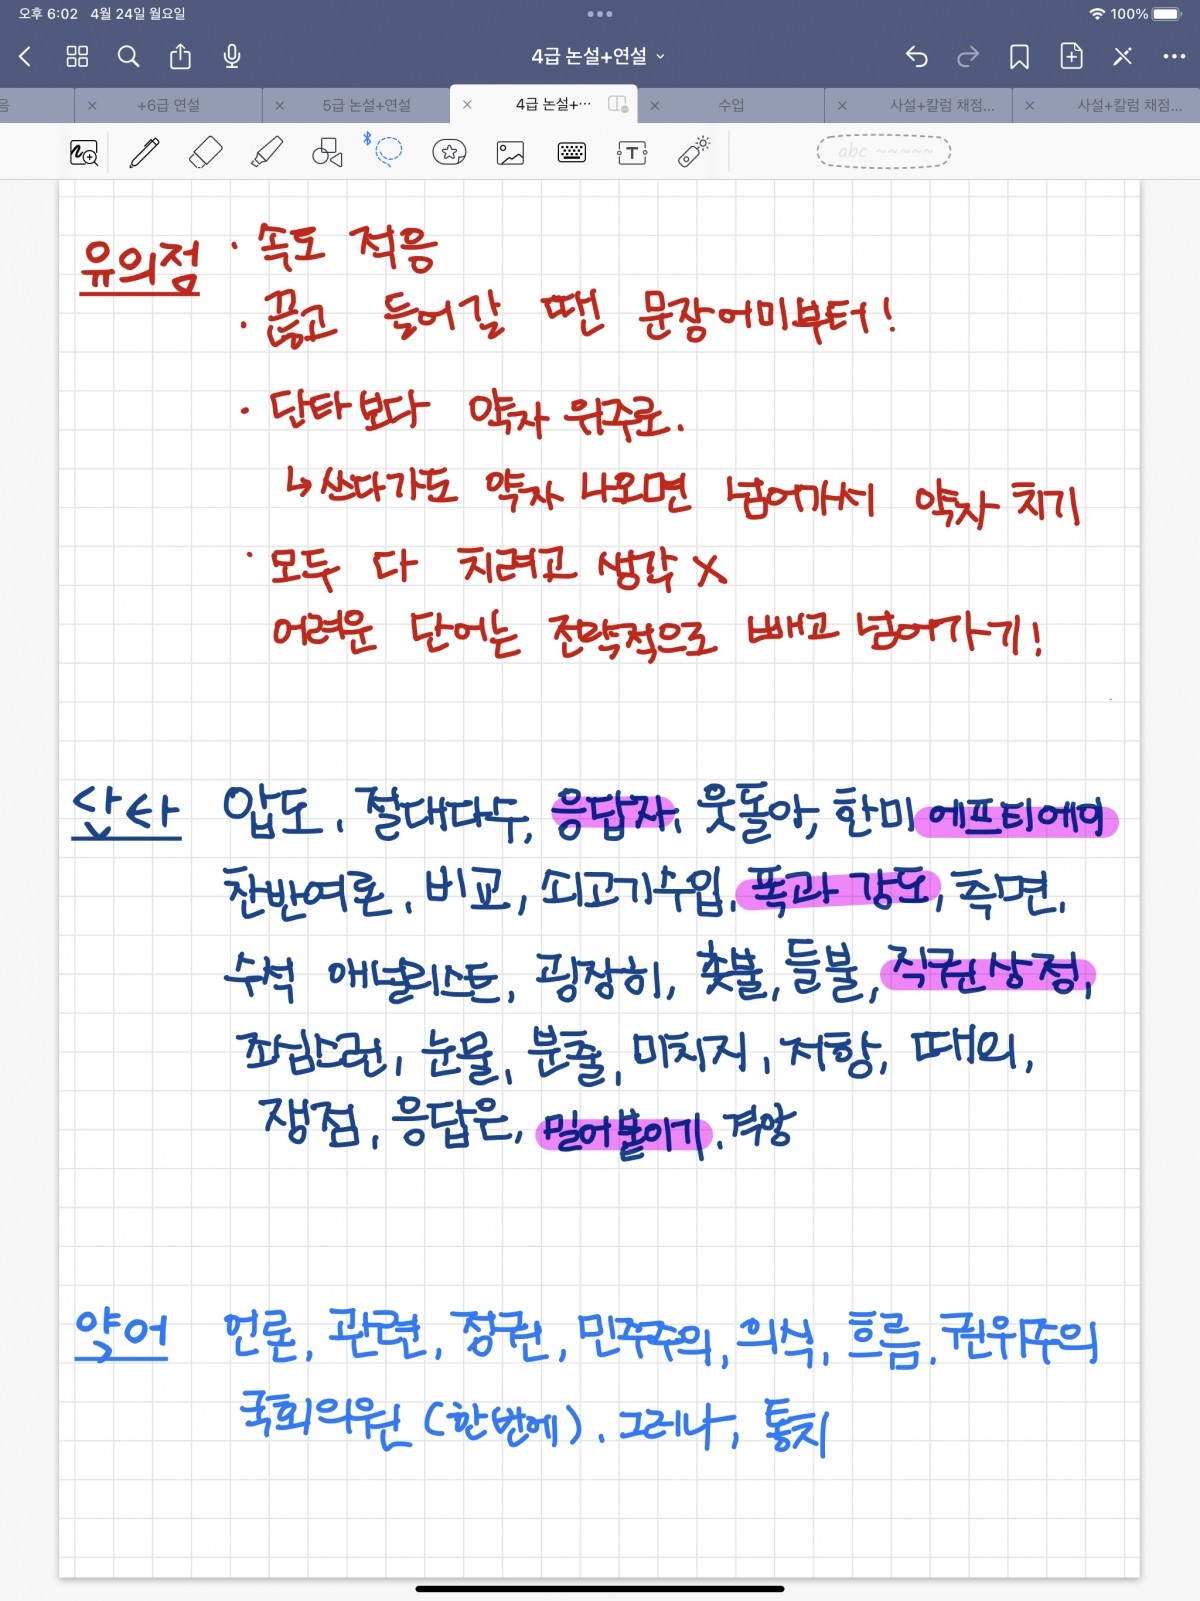 오후 6:02 4월 24일 월요일 100%
4급 논설+연설
음 × +6급 연설 × 5급 논설+연설 × 4급 논설+… × 수업 × 사설+칼럼 채점… × 사설+칼럼 채점…
abc ~~~~~
유의점 · 속도 적응
· 끊고 들어갈 땐 문장어미부터!
· 단타보다 약자 위주로.
↳ 쓰다가도 약자 나오면 넘어가서 약자 치기
· 모두 다 치려고 생각 X
어려운 단어는 전략적으로 빼고 넘어가기!
압도, 절대다수, 응답자, 웃돌아, 한미 에프티에이
찬반여론, 비교, 쇠고기수입, 폭과 강도, 측면,
수석 애널리스트, 굉장히, 촛불, 들불, 직권상정,
눈물, 분출, 미치지, 저항, 때외,
쟁점, 응답은, 밀어붙이기, 격앙
약어 언론, 관련, 정권, 민주주의, 의식, 흐름, 권위주의
국회의원 (한번에), 그러나, 통치